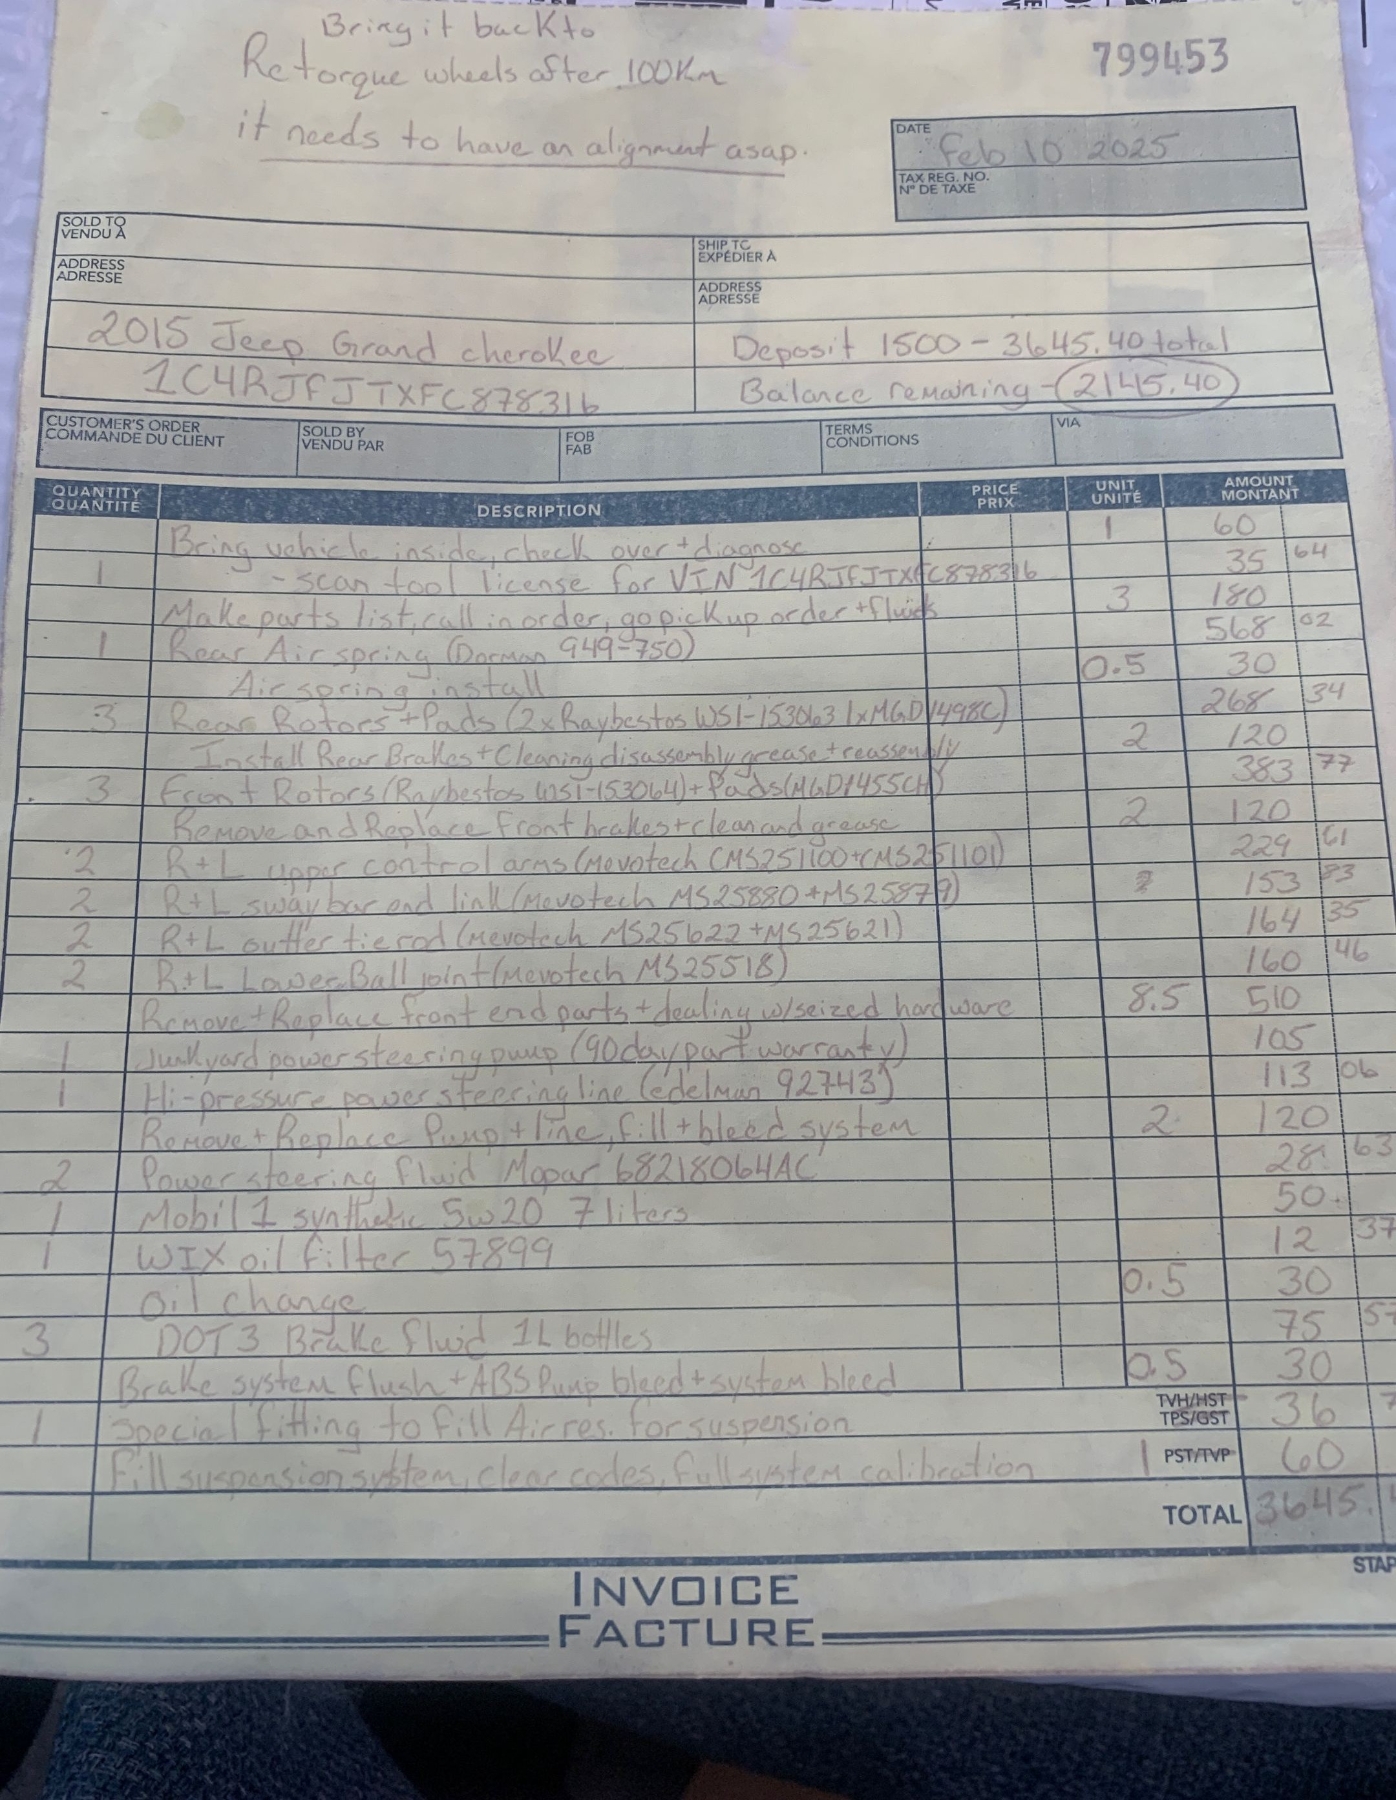 Bring it back to
Retorque wheels after 100Km
it needs to have an alignment asap.
799453
DATE
Feb 10 2025
TAX REG. NO.
Nº DE TAXE
SOLD TO
VENDU À
SHIP TO
EXPÉDIER À
ADDRESS
ADRESSE
ADDRESS
ADRESSE
2015 Jeep Grand cherokee
Deposit 1500 - 3645.40 total
1C4RJFJTXFC878316
Balance remaining - 2145.40
CUSTOMER'S ORDER
COMMANDE DU CLIENT
SOLD BY
VENDU PAR
FOB
FAB
TERMS
CONDITIONS
VIA
QUANTITY
QUANTITÉ
DESCRIPTION
PRICE
PRIX
UNIT
UNITÉ
AMOUNT
MONTANT
Bring vehicle inside, check over + diagnose 1 60
1 - scan tool license for VIN 1C4RJFJTXFC878316 35 64
Make parts list, call in order, go pick up order + fluids 3 180
1 Rear Air spring (Dorman 949-750) 568 02
Air spring install 0.5 30
3 Rear Rotors + Pads (2x Raybestos WS1-153063 1xMGD1498C) 268 34
Install Rear Brakes + Cleaning disassembly grease + reassembly 2 120
3 Front Rotors (Raybestos WS1-153064) + Pads (MGD1455CH) 383 77
Remove and Replace front brakes + clean and grease 2 120
2 R+L upper control arms (Mevotech CMS251100+CMS251101) 229 61
2 R+L sway bar end link (Mevotech MS25880 + MS25879) 153 83
2 R+L outter tie rod (Mevotech MS25622 + MS25621) 164 35
2 R+L Lower Ball joint (Mevotech MS25518) 160 46
Remove + Replace front end parts + dealing w/seized hardware 8.5 510
1 Junkyard power steering pump (90 day part warranty) 105
1 Hi-pressure power steering line (edelman 92743) 113 06
Remove + Replace Pump + line, fill + bleed system 2 120
2 Power steering fluid Mopar 68218064AC 28 63
1 Mobil 1 synthetic 5w20 7 liters 50
1 WIX oil filter 57899 12 37
Oil change 0.5 30
3 DOT 3 Brake fluid 1L bottles 75 57
Brake system flush + ABS Pump bleed + system bleed 0.5 30
TVH/HST
TPS/GST
1 Special fitting to fill Air res. for suspension 36
Fill suspension system, clear codes, full system calibration 1 PST/TVP 60
TOTAL 3645.
STAP
INVOICE
FACTURE